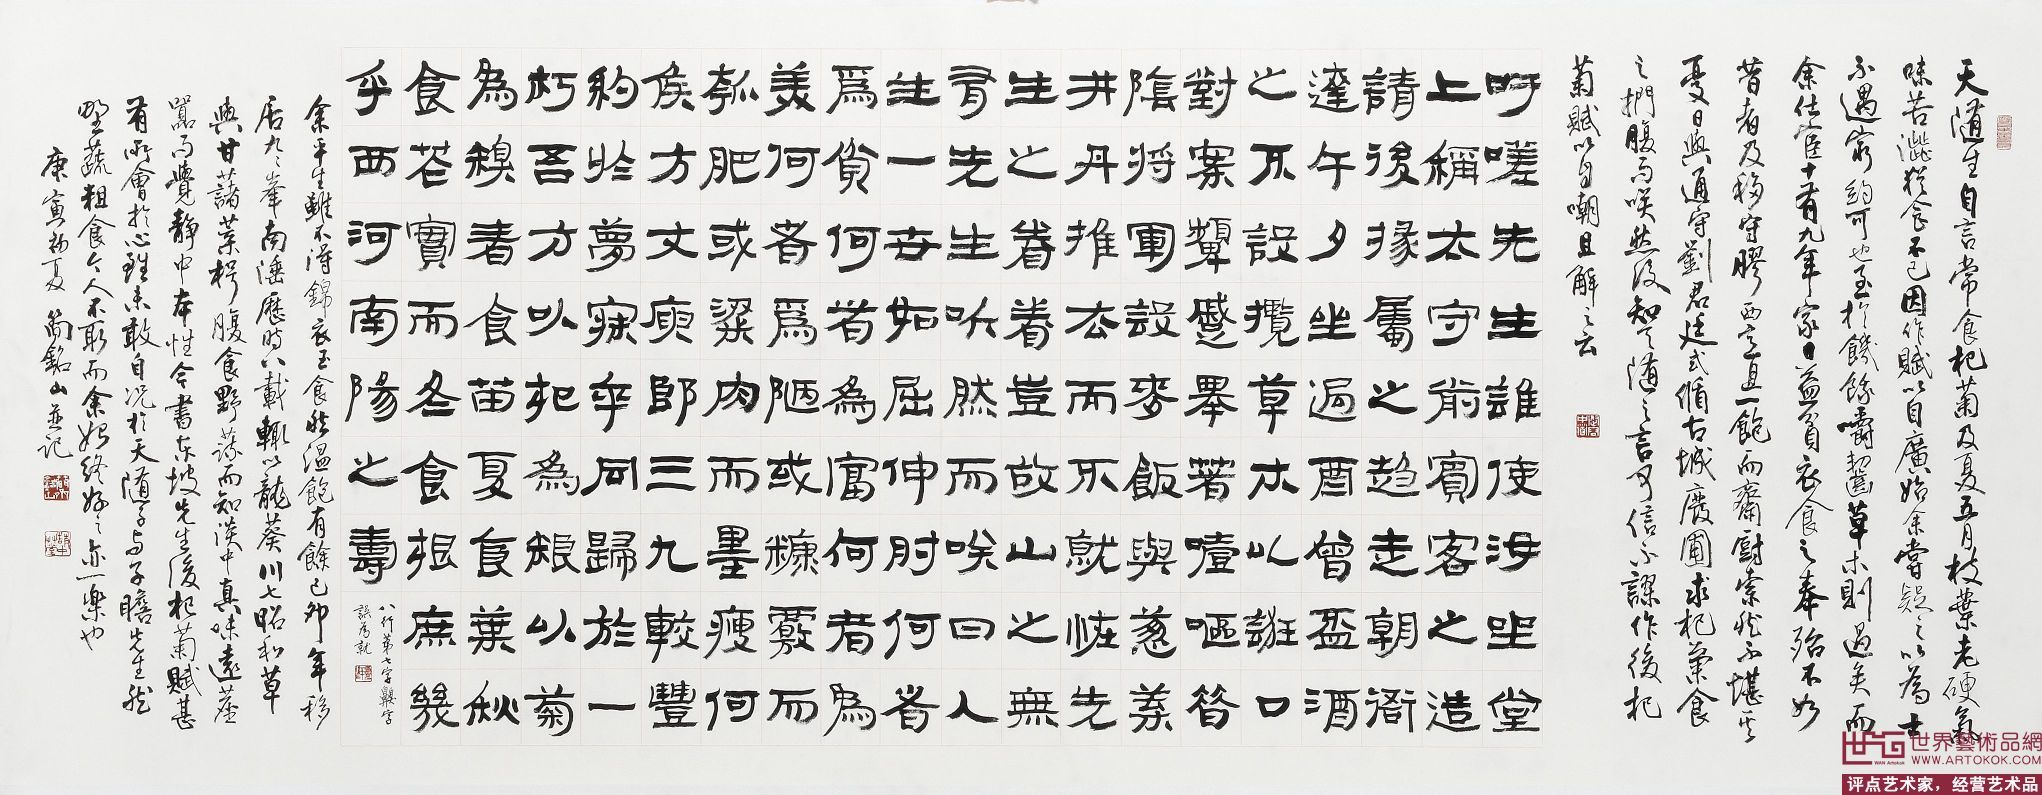 天随生自言常食杞菊及夏五月枝葉老硬氣
味苦澀猶食不已因作賦以自廣始余嘗疑之以為士
不遇窮約可也至於饑餓嚼齧草木則過矣而
余仕宦十有九年家日益貧衣食之奉殆不如
昔者及移守膠西意且一飽而齋廚索然不堪其
憂日與通守劉君廷式循古城廢圃求杞菊食
之捫腹而笑然後知天随之言可信不謬作後杞
菊賦以自嘲且解之云
吁嗟先生誰使汝坐堂
上稱太守前賓客之造
請後掾屬之趨走朝衙
達午夕坐過酉曾盃酒
之不設攬草木以誑口
對案顰蹙舉箸噎嘔昔
陰將軍設麥飯與葱葉
井丹推去而不就怪先
生之眷眷豈故山之無
有先生听然而笑曰人
生一世如屈伸肘何者
爲貧何者為富何者為
美何者爲陋或糠覈而
瓠肥或粱肉而墨瘦何
侯方丈庾郎三九較豐
約於夢寐卒同歸於一
朽吾方以杞為糧以菊
為糗春食苗夏食葉秋
食花實而冬食根庶幾
乎西河南陽之壽
八行第七字齅字
誤為就
余平生雖不得錦衣玉食然溫飽有餘己卯年移
居九々峯南潘歷時八載輒以龍葵川七昭和草
與甘藷葉裹腹食野蔬而知淡中真味遠塵
囂而覺靜中本性今書東坡先生後杞菊賦甚
有所會於心雖未敢自况於天随子与子瞻先生然
野蔬粗食今人不取而余始終好之亦一樂也
庚寅初夏 簡銘山並記
世界藝術品網
WAN Artokok
WWW.ARTOKOK.COM
评点艺术家，经营艺术品